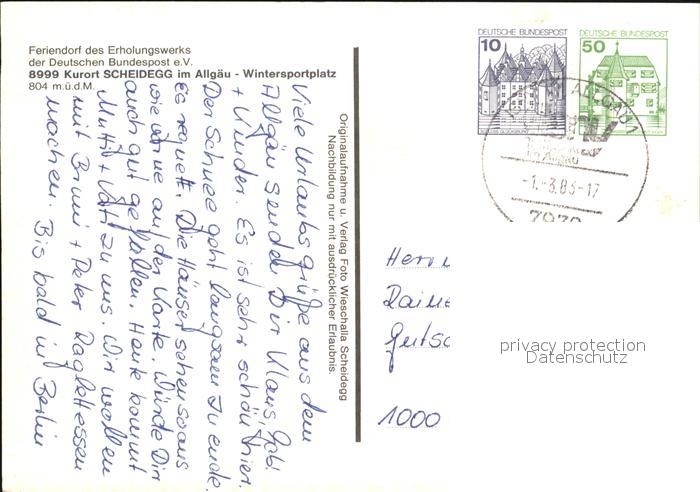 Feriendorf des Erholungswerks
der Deutschen Bundespost e.V.
8999 Kurort SCHEIDEGG im Allgäu - Wintersportplatz
804 m.ü.d.M.
Viele Urlaubsgrüße aus dem
Allgäu senden Dir Klaus, Gabi
+ Kinder. Es ist sehr schön hier.
Der Schnee geht langsam zu ende.
Es regnet. Die Häuser sehen so aus
wie eine an der Karte. Würde Dir
auch gut gefallen. Heute kommt
Mutti + Vati zu uns. Wir wollen
mit Bruni + Peter Raglettessen
machen. Bis bald in Berlin
Originalaufnahme u. Verlag Foto Wieschalla Scheidegg
Nachbildung nur mit ausdrücklicher Erlaubnis.
DEUTSCHE BUNDESPOST
10
DEUTSCHE BUNDESPOST
50
ALLGÄU 1
-1.-3.83-17
Herrn
Raine
Gutsc
1000
privacy protection
Datenschutz